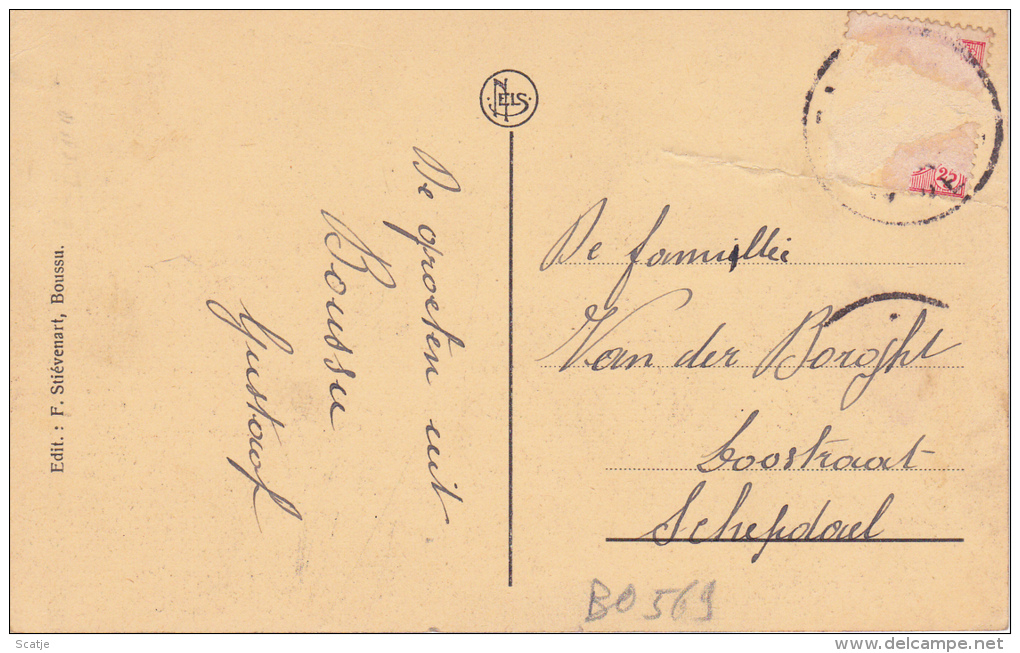 Edit. : F. Stiévenart, Boussu.
NELS
De groeten uit
Boussu
Gustaaf
De famillie
Van der Borght
Loostraat
Schepdael
BO569
22
Scatje
www.delcampe.net